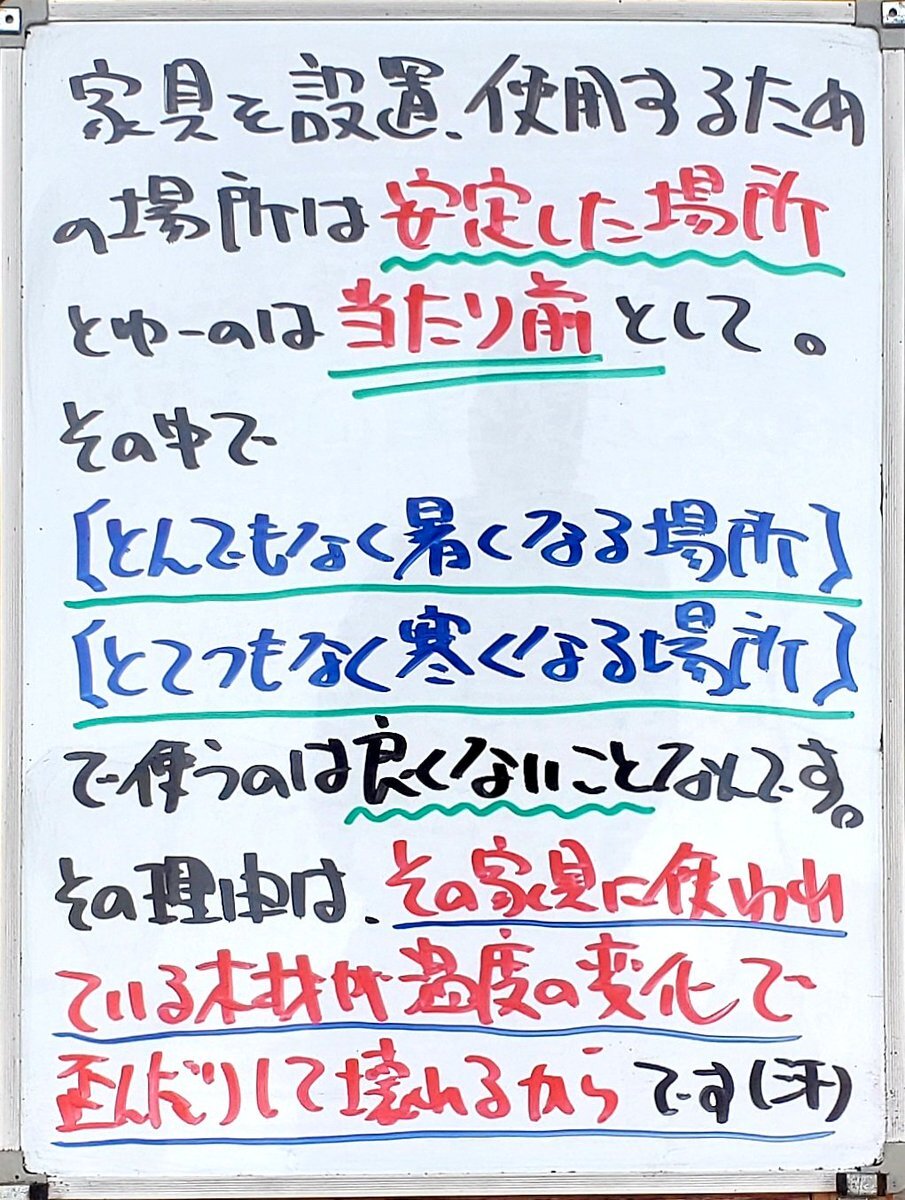 家具を設置、使用するため
の場所は安定した場所
とゆーのは当たり前として。
その中で
[とんでもなく暑くなる場所]
[とてつもなく寒くなる場所]
で使うのは良くないことなんです。
その理由は、その家具に使われ
ている木材が温度の変化で
歪んだりして壊れるからです(汗)